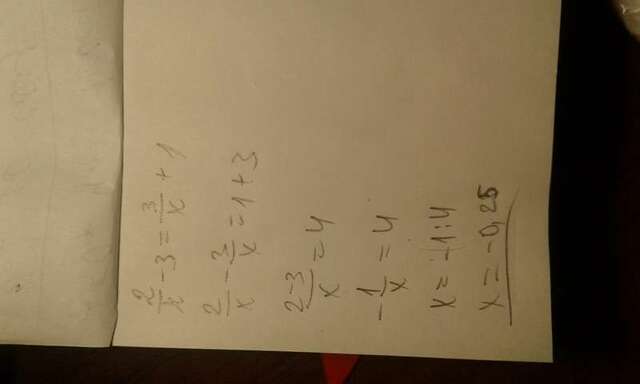 2/x - 3 = 3/x + 1
2/x - 3/x = 1 + 3
2-3/x = 4
- 1/x = 4
x = -1:4
x = -0,25